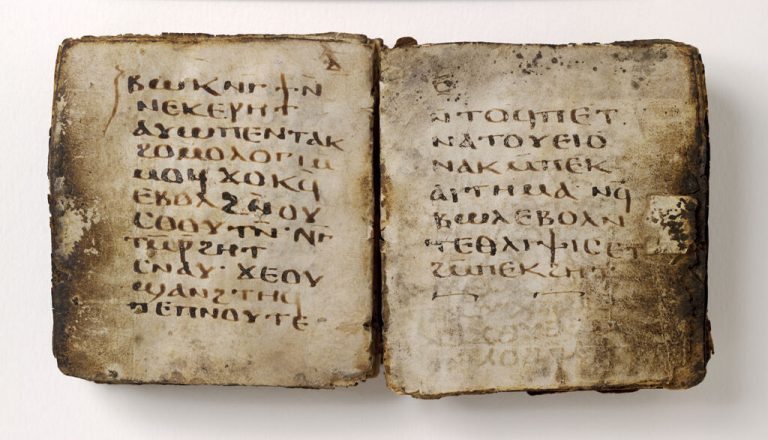 ⲃⲱⲕ ⲛⲅϯ ⲛ̄
ⲛⲉⲕⲉⲣⲏⲧ
ⲁⲩⲱ ⲡⲉⲛⲧⲁⲕ
ϩⲟⲙⲟⲗⲟⲅⲓⲁ
ⲙⲟϥ ϫⲟⲕϥ̄
ⲉⲃⲟⲗ ϩⲛ̄ⲟⲩ
ⲥⲟⲟⲩⲧⲛ̄· ⲛⲅ
ⲧⲙ̄ⲣ̄ϩⲏⲧ
ⲥⲛⲁⲩ· ϫⲉⲟⲩ
ϣⲁⲛϩⲧⲏϥ
ⲡⲉⲡⲛⲟⲩⲧⲉ·
ⲛⲧⲟϥⲡⲉⲧ
ⲛⲁⲧⲟⲩⲉⲓⲟ
ⲛⲁⲕ ⲙ̄ⲡⲉⲕ
ⲁⲓⲧⲏⲙⲁ ⲛϥ̄
ⲃⲱⲗ ⲉⲃⲟⲗ ⲛ
ⲧⲉⲑⲗⲓⲯⲓⲥ ⲉⲧ
ϩⲙ̄ⲡⲉⲕϩⲏⲧ